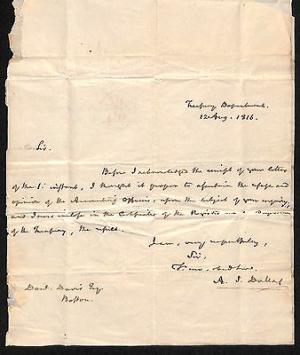 Treasury Department.
12 Aug. 1816.
Sir,
Before I acknowledged the receipt of your letter
of the 1st instant, I thought it proper to ascertain the usage and
opinion of the Accounting Officers, upon the subject of your enquiry,
and I now enclose in the Certificates of the Register and
of the Treasury, the result.
I am, very respectfully,
Sir,
Your obed serv.
A. J. Dallas
Danl. Davis Esq
Boston.